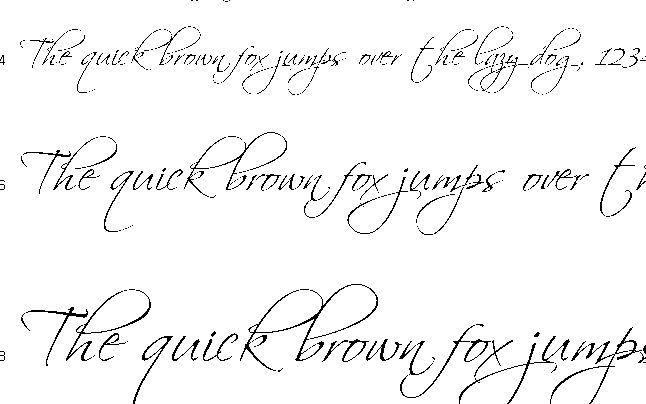 4 The quick brown fox jumps over the lazy dog. 1234
6 The quick brown fox jumps over th
8 The quick brown fox jumps